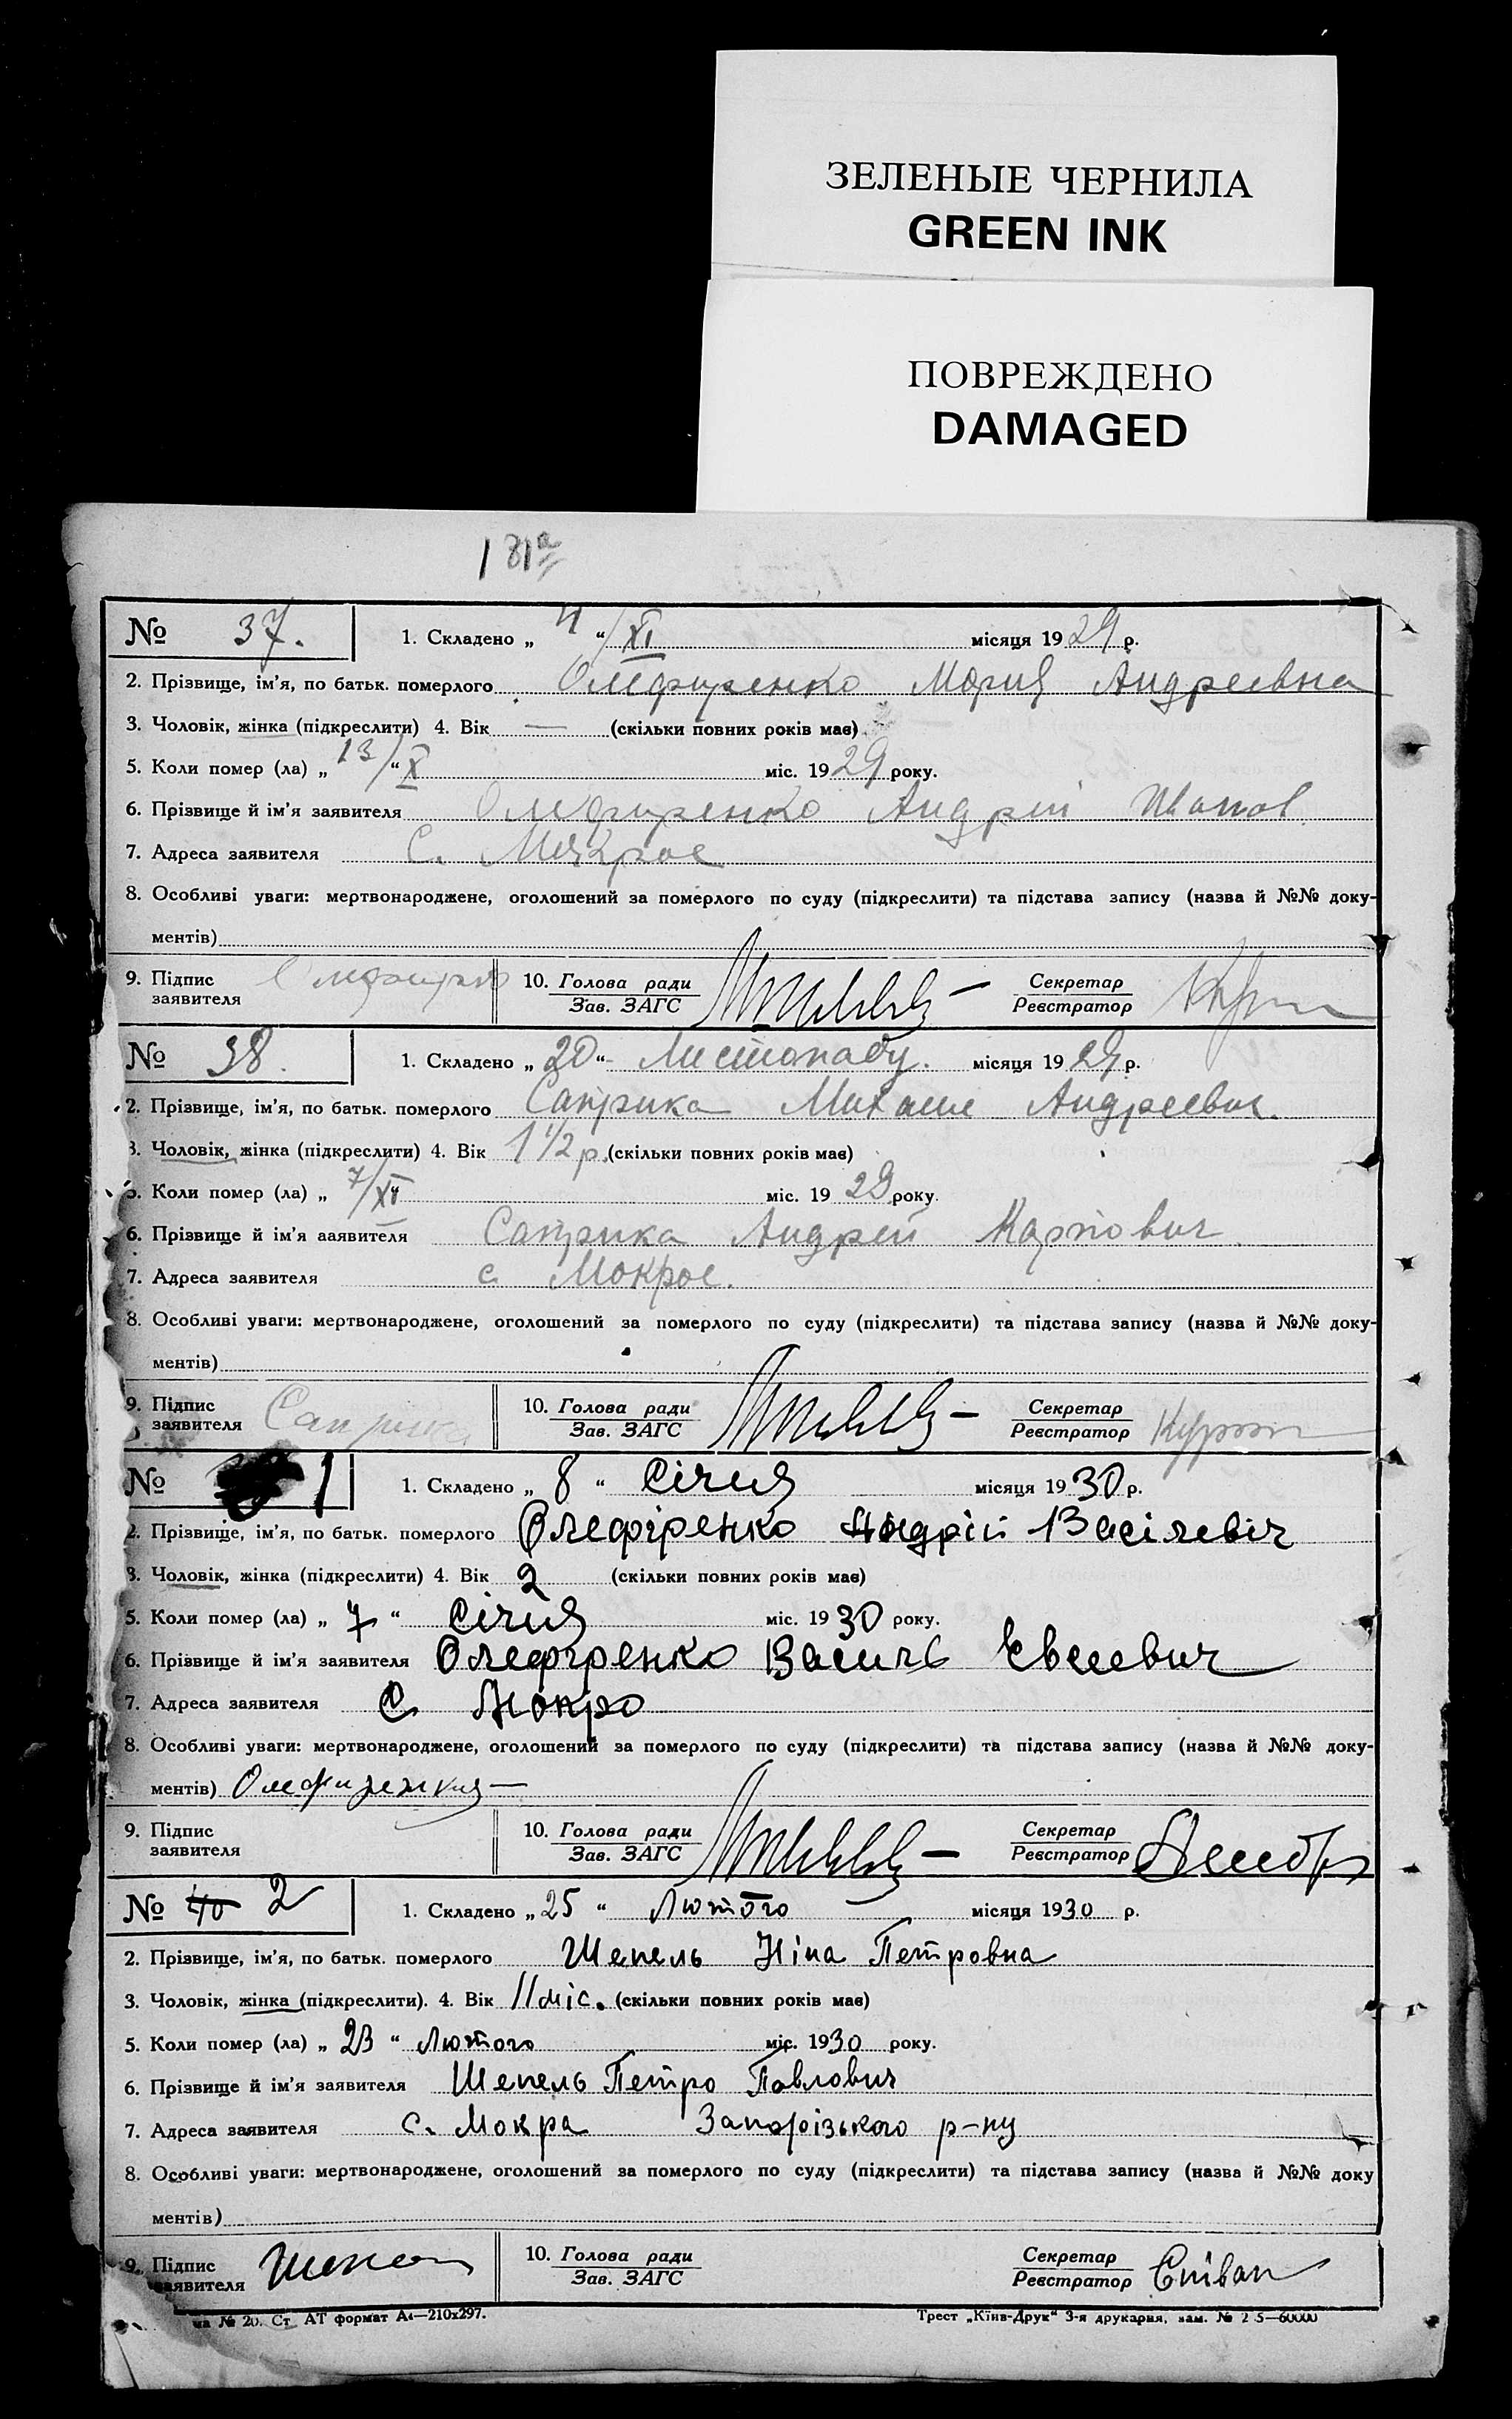 ЗЕЛЕНЫЕ ЧЕРНИЛА
GREEN INK
ПОВРЕЖДЕНО
DAMAGED
№ 37. 1. Складено „ “ XI місяця 1929 р.
2. Прізвище, ім'я, по батьк. померлого Олефиренко Мария Андреевна
3. Чоловік, жінка (підкреслити) 4. Вік — (скільки повних років має)
5. Коли помер (ла) „13/“ X міс. 1929 року.
6. Прізвище й ім'я заявителя Олефиренко Андрій Иванов.
7. Адреса заявителя С. Мокрое
8. Особливі уваги: мертвонароджене, оголошений за померлого по суду (підкреслити) та підстава запису (назва й №№ доку-
ментів)
9. Підпис заявителя 10. Голова ради Зав. ЗАГС Секретар Реєстратор
№ 38. 1. Складено „20“ Листопаду. місяця 1929 р.
2. Прізвище, ім'я, по батьк. померлого Саприка Михаил Андреевич.
3. Чоловік, жінка (підкреслити) 4. Вік 1 1/2 р. (скільки повних років має)
5. Коли помер (ла) „ 7/XI міс. 1929 року.
6. Прізвище й ім'я заявителя Саприка Андрей Карпович
7. Адреса заявителя с. Мокрое.
8. Особливі уваги: мертвонароджене, оголошений за померлого по суду (підкреслити) та підстава запису (назва й №№ доку-
ментів)
9. Підпис заявителя Саприка 10. Голова ради Зав. ЗАГС Секретар Реєстратор
№ 1 1. Складено „ 8 “ Січня місяця 1930 р.
2. Прізвище, ім'я, по батьк. померлого Олефіренко Андрій Васілевіч
3. Чоловік, жінка (підкреслити) 4. Вік 2 (скільки повних років має)
5. Коли помер (ла) „ 7 “ Січня міс. 1930 року.
6. Прізвище й ім'я заявителя Олефіренко Василь
7. Адреса заявителя С Мокро
8. Особливі уваги: мертвонароджене, оголошений за померлого по суду (підкреслити) та підстава запису (назва й №№ доку-
ментів)
9. Підпис заявителя 10. Голова ради Зав. ЗАГС Секретар Реєстратор
№ 40 2 1. Складено „25 “ Лютого місяця 1930 р.
2. Прізвище, ім'я, по батьк. померлого Шепель Ніна Петровна
3. Чоловік, жінка (підкреслити). 4. Вік 11 міс. (скільки повних років має)
5. Коли помер (ла) „ 23 “ Лютого міс. 1930 року.
6. Прізвище й ім'я заявителя Шепель Петро Павлович
7. Адреса заявителя с. Мокра Запорізького р-ну
8. Особливі уваги: мертвонароджене, оголошений за померлого по суду (підкреслити) та підстава запису (назва й №№ доку
ментів)
9. Підпис заявителя 10. Голова ради Зав. ЗАГС Секретар Реєстратор
№ 20. Ст. АТ формат А4—210х297. Трест „Київ-Друк“ 3-я друкарня, зам. №